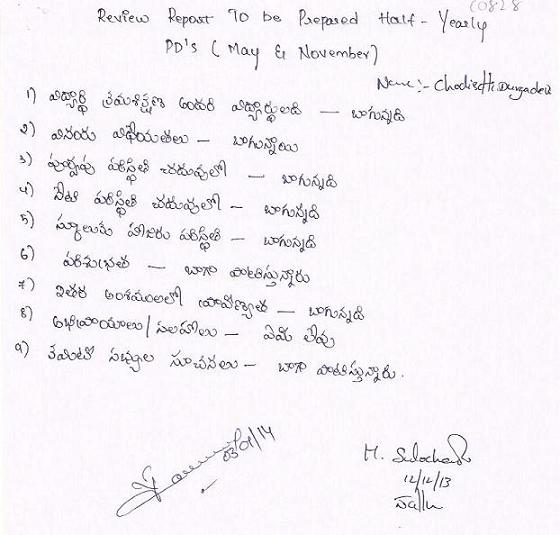 60828
Review Report To be Prepared Half - Yearly
PD's ( May & November)
Name :- Chodisetti. Durgadevi
1) విద్యార్థి క్రమశిక్షణ ఇందరి విద్యార్థులది — బాగున్నది
2) వినయ విధేయతలు — బాగున్నాయి
3) పూర్వపు పరిస్థితి చదువులో — బాగున్నది
4) నేటి పరిస్థితి చదువులో — బాగున్నది
5) స్కూలుకు హాజరు పరిస్థితి — బాగున్నది
6) పరిశుభ్రత — బాగా పాటిస్తున్నారు
7) ఇతర అంశములలో ప్రావీణ్యత — బాగున్నది
8) అభిప్రాయాలు/సలహాలు — ఏమి లేవు
9) కమిటీ సభ్యుల సూచనలు — బాగా పాటిస్తున్నారు.
03/01/14
M. Sulochana
12/12/13